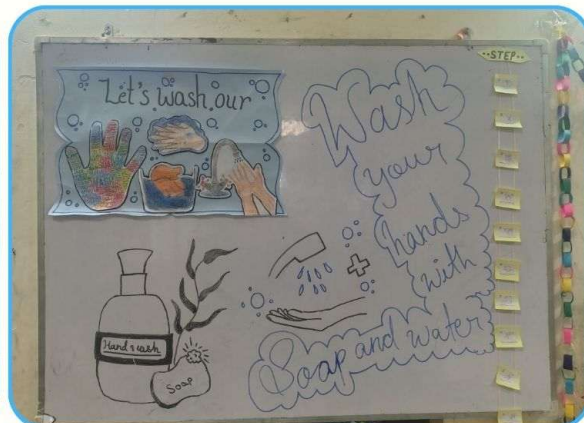 Let's wash our
Wash
your
hands
with
Soap and water
STEP
Hand wash
Soap